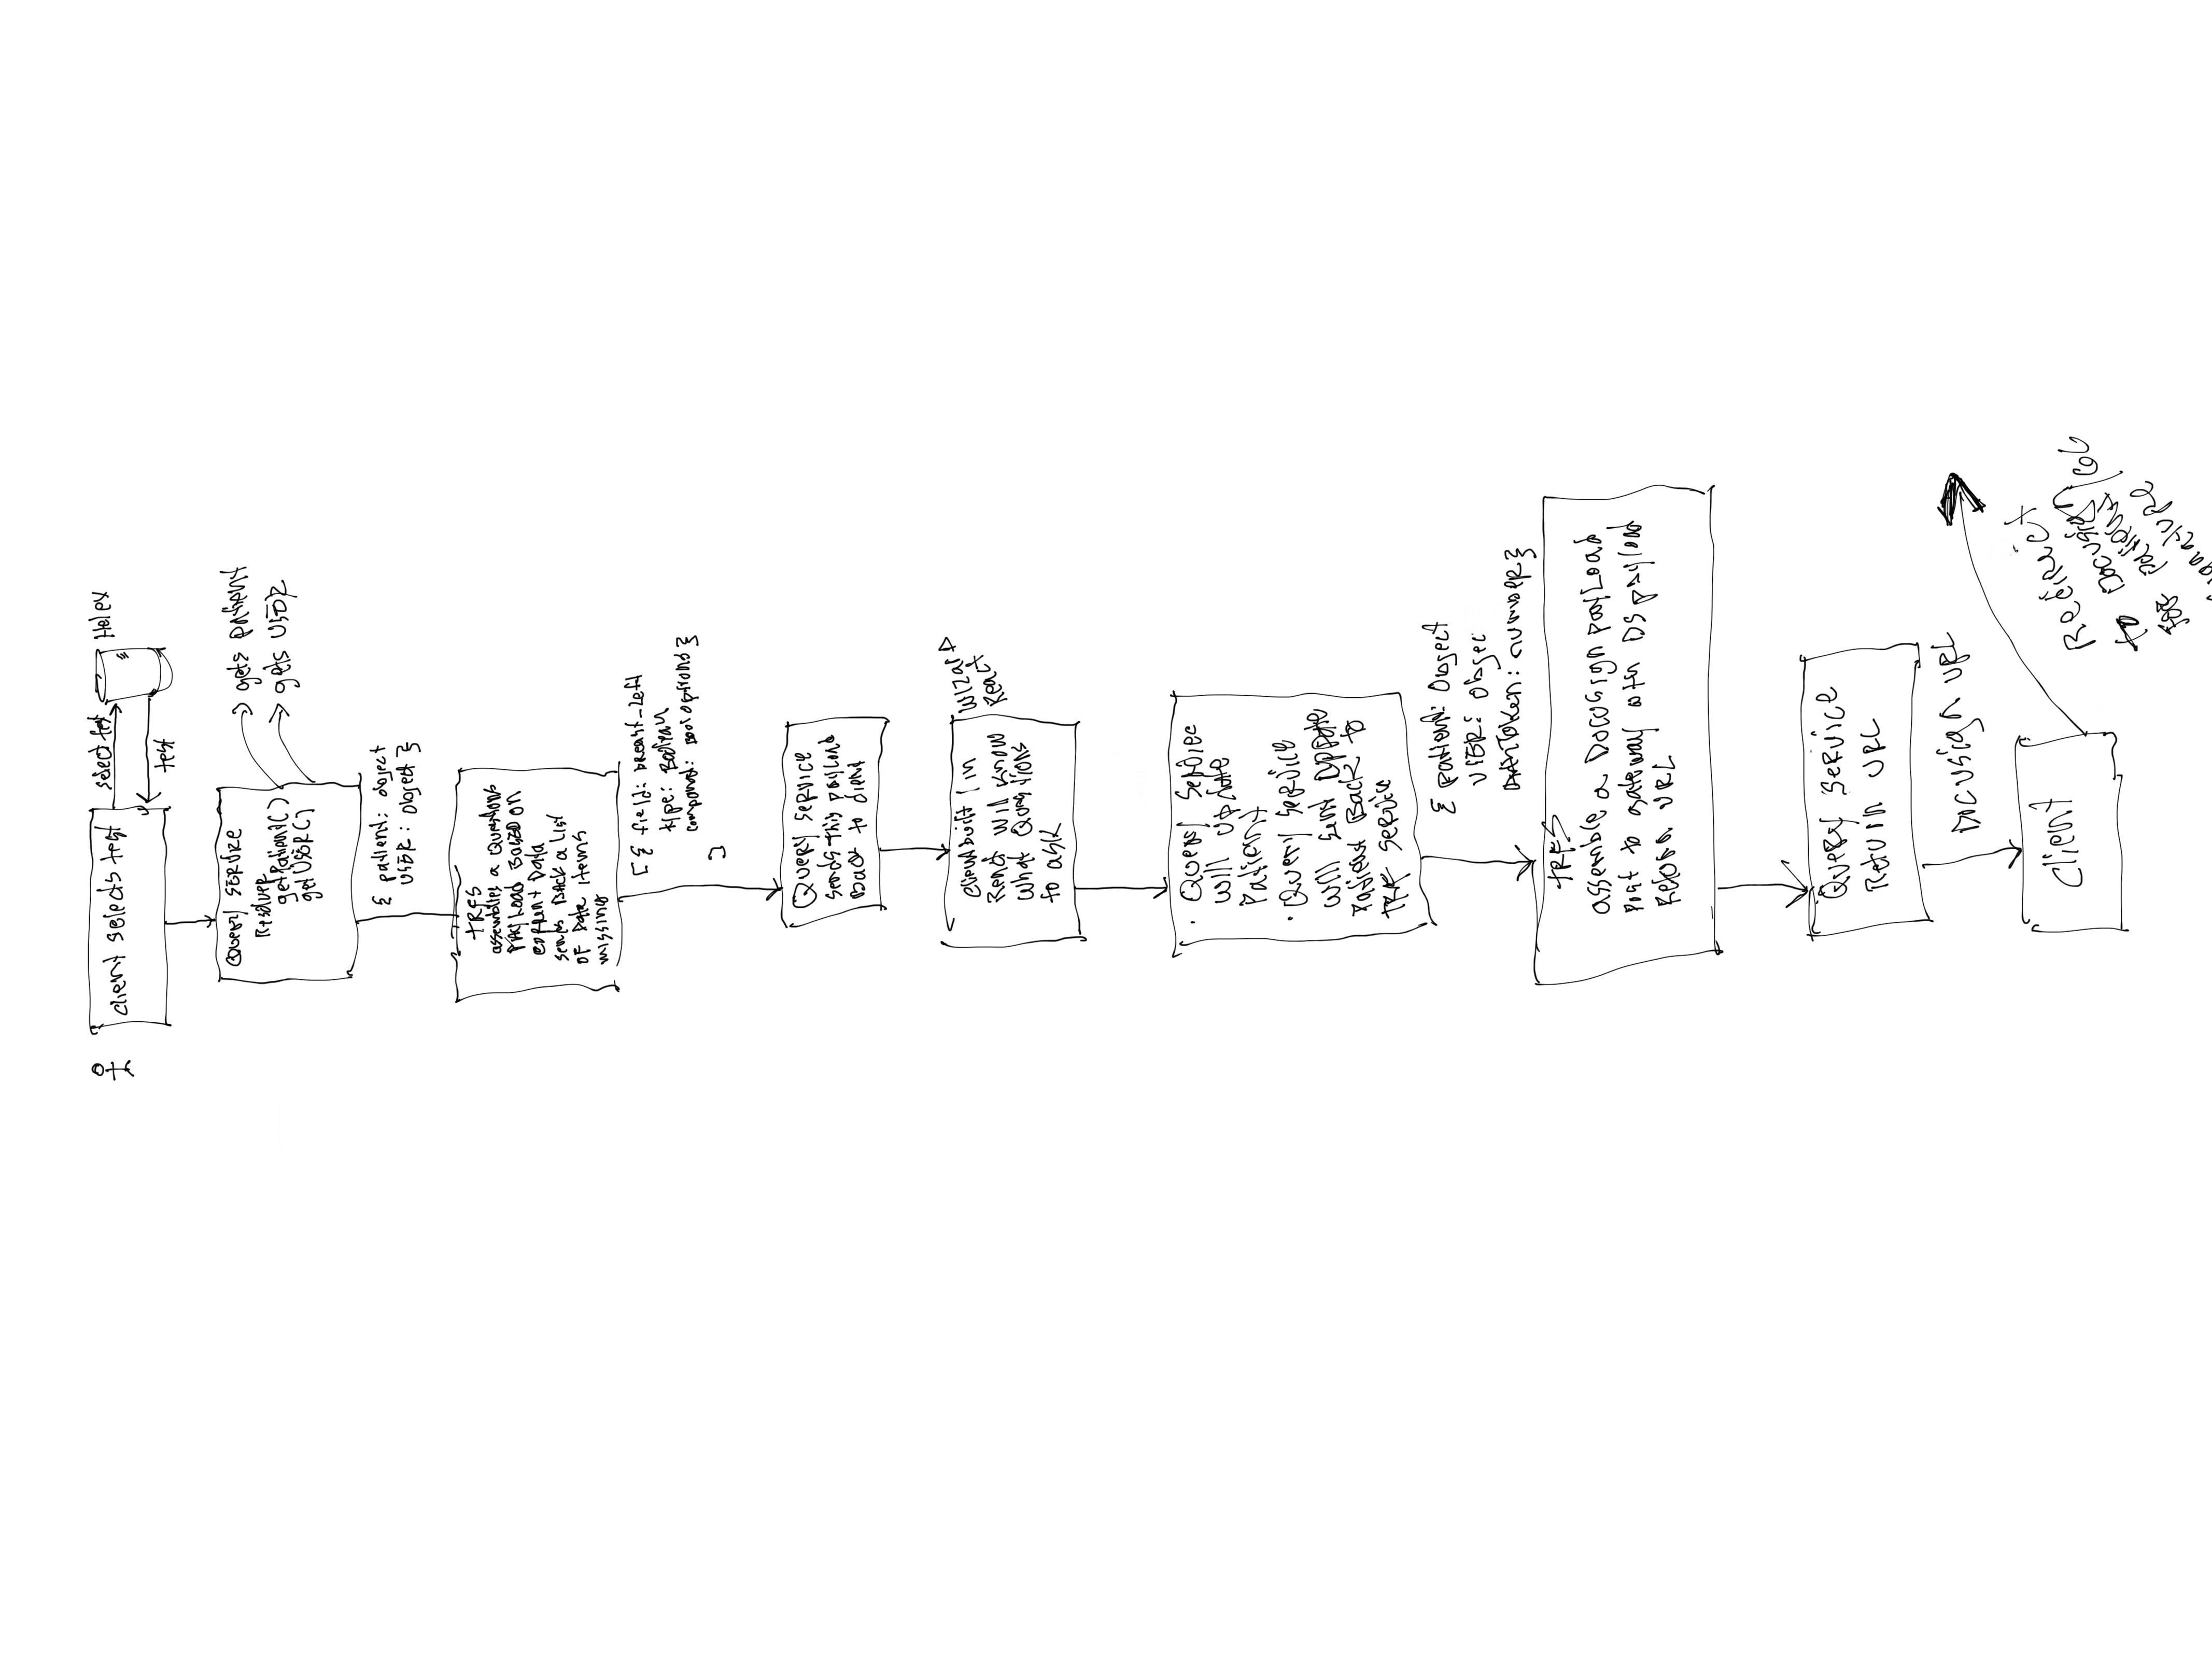 client selects test
select test
Helex
test
Query SERVICE
Resolver
getPatient()
getUSER()
gets patient
gets USER
{ patient: object
USER: object }
tRFS
assembles a Questions
PAYLOAD BASED ON
current Data
sends BACK a LIST
OF Data items
missing
[{ field: breast_Left
type: Boolean
component: Bool options }
]
Query Service
sends this payload
Back to client
client built in
React will know
what Questions
to ask
WIZARD
React
• Query Service
will update
Patient
• Query Service
will sent update
Patient Back to
TRF Service
{ patient: Object
USER: Objec
AuthToken: number }
tRFS
assemble a Docusign payLoad
Post to gateway with DS payload
Return URL
Query Service
Return URL
Docusign URL
client
Redirect
to Docusign
For patient/GC
signature